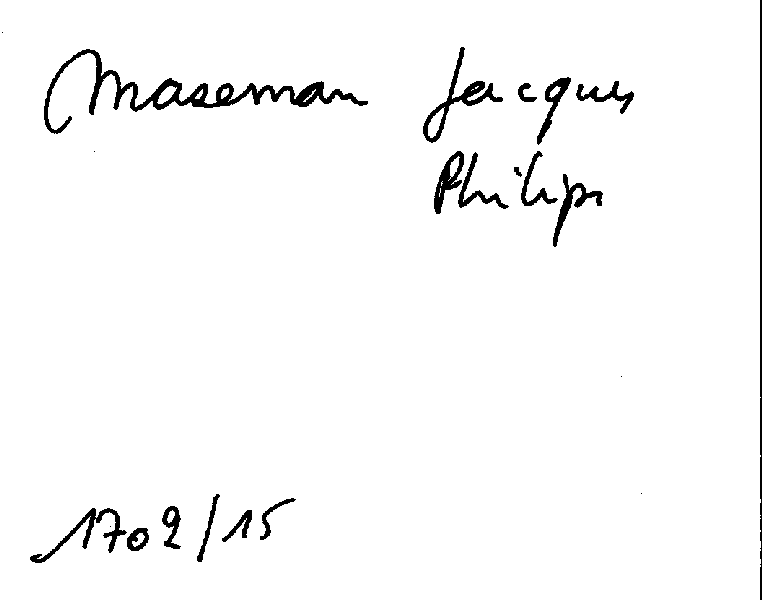 Maseman Jacques
Philips
1702/15